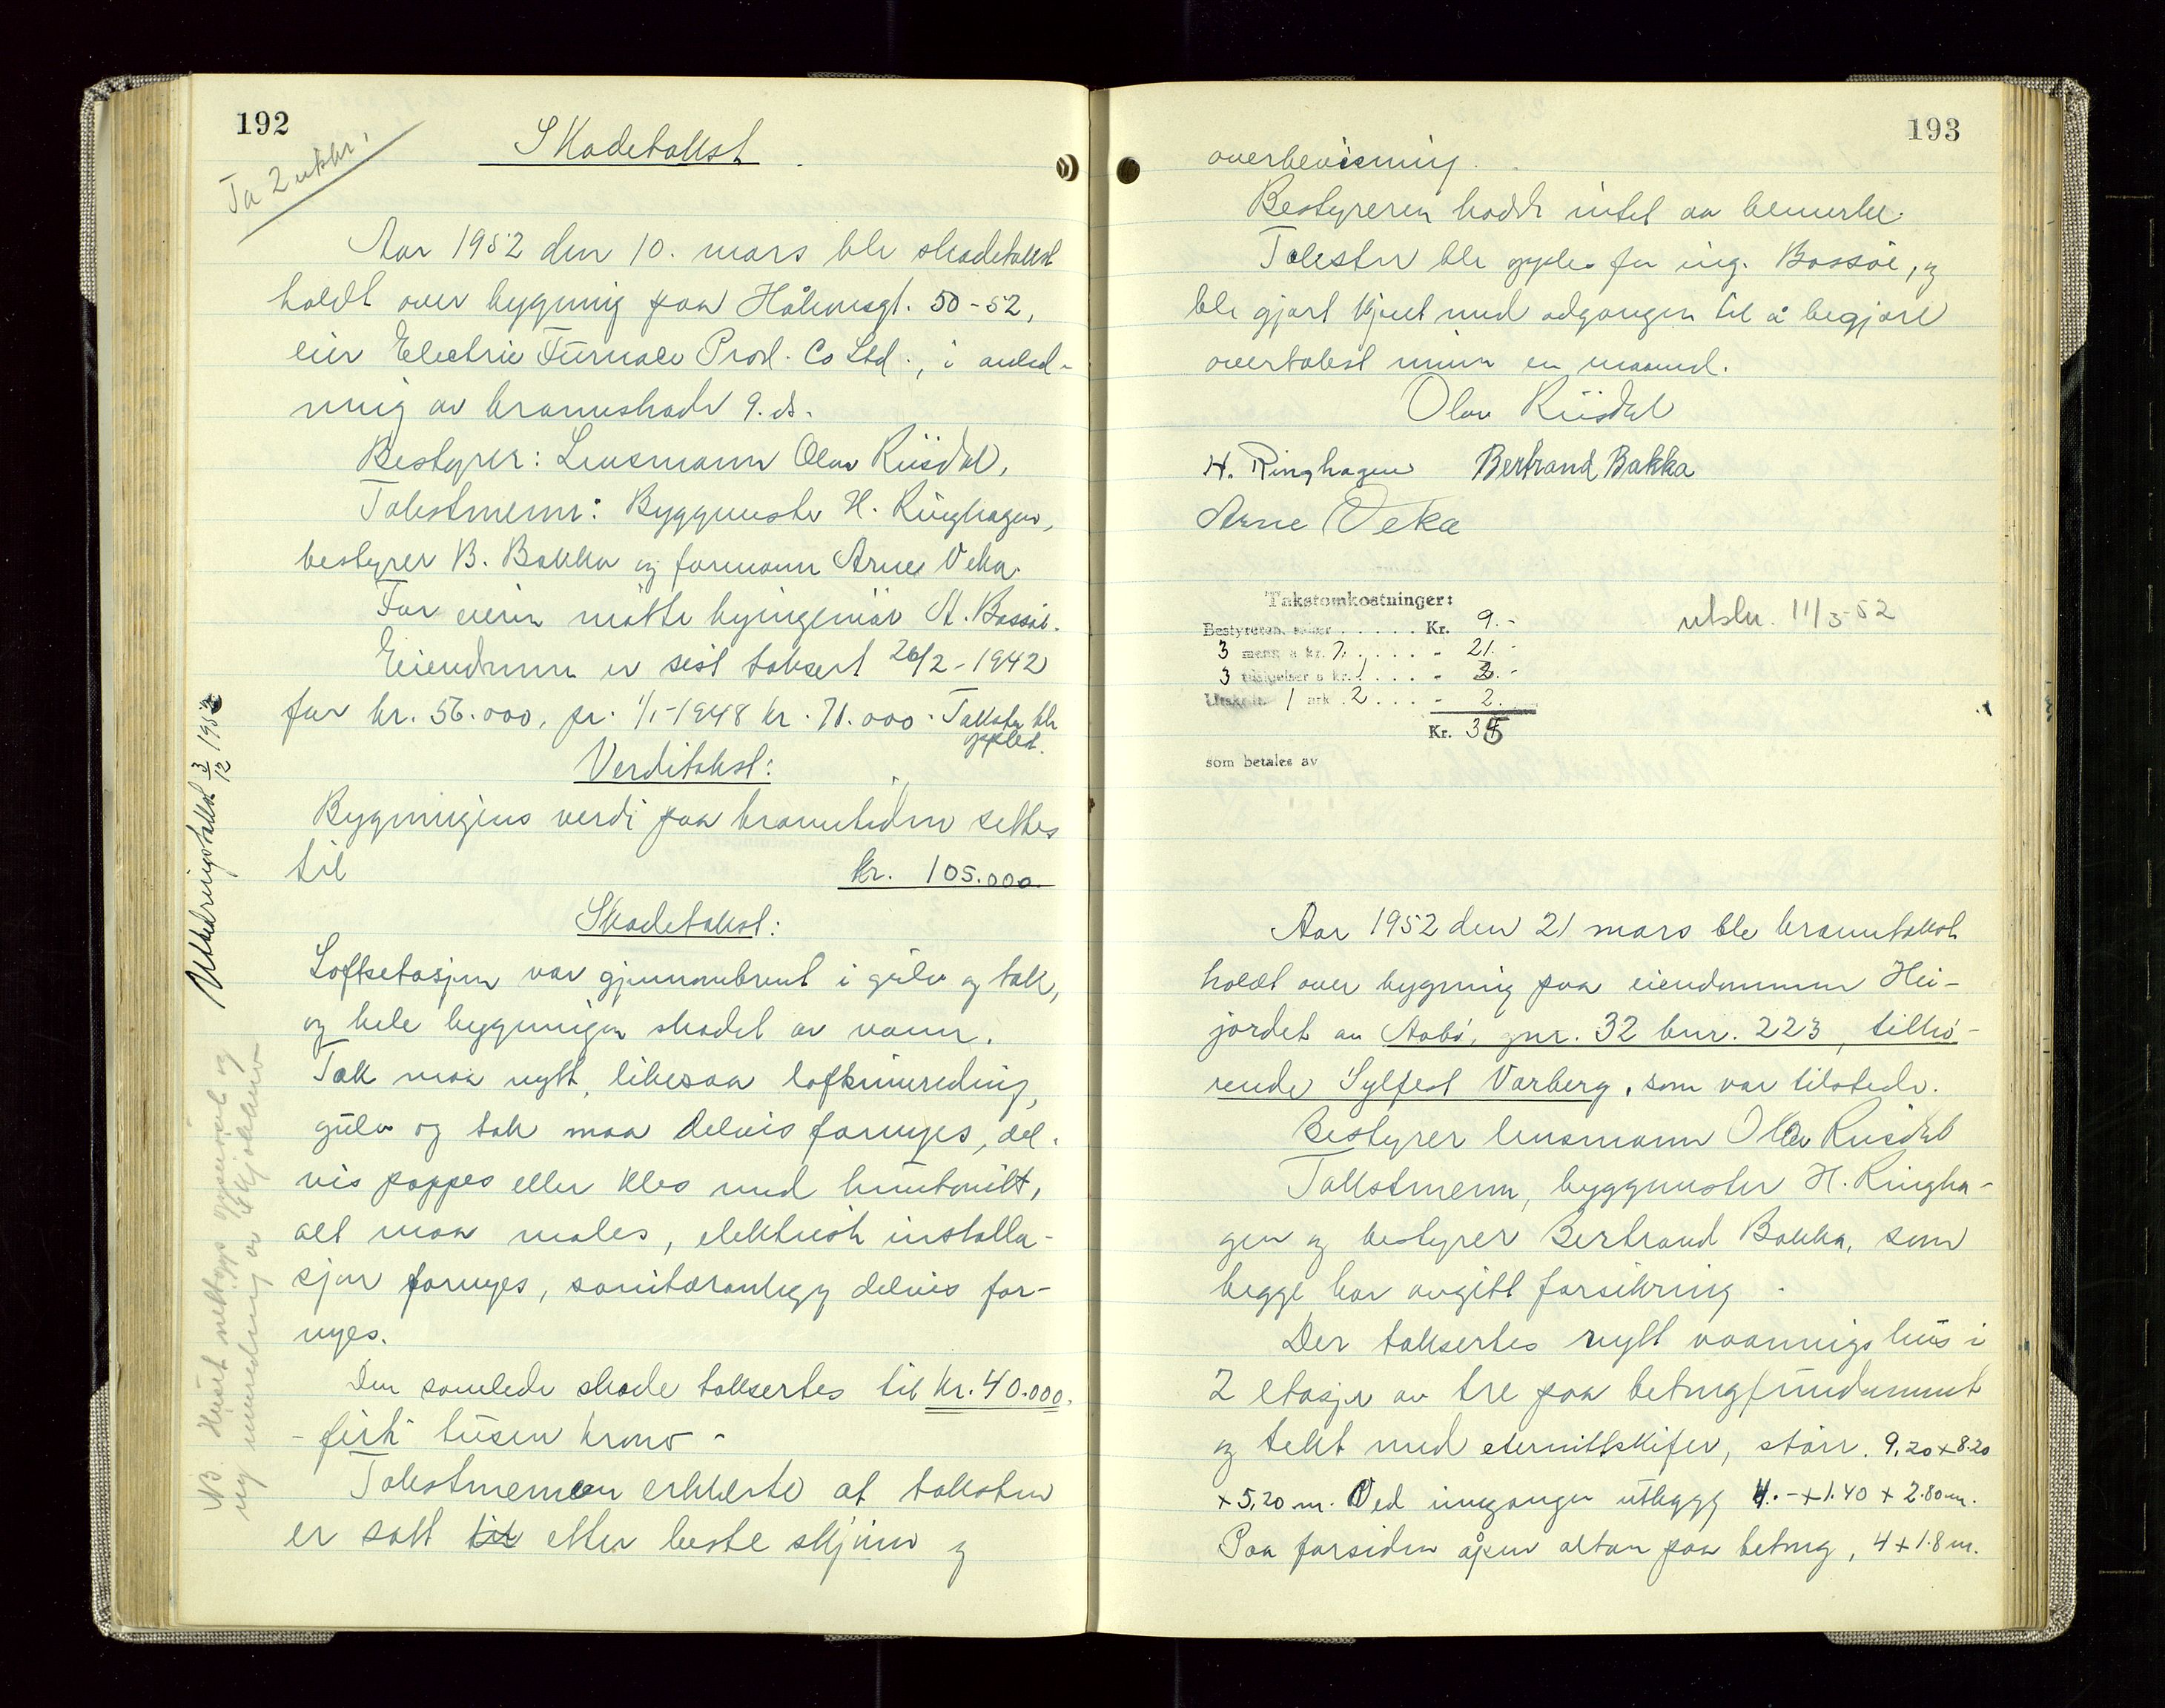 192
Ta 2 utskr.
Skadetakst.
Aar 1952 den 10. mars ble skadetakst
holdt over bygning paa Håkonsgt. 50-52,
eier Electric Furnace Prod. Co Ltd., i anled-
ning av brannskade 9. ds.
Bestyrer: Lensmann Olav Riisdal,
Takstmenn: Byggmester H. Ringhagen,
bestyrer B. Bakka og formann Arne Veka.
For eieren møtte byingeniør St. Bossøe.
Eiendommen er sist taksert 26/2-1942
for kr. 56.000, pr. 1/1-1948 kr. 71.000. Taksten ble
opplest.
Verditakst:
Bygningens verdi paa branntiden settes
til kr. 105.000.
Skadetakst:
Loftsetasjen var gjennombrent i gulv og tak,
og hele bygningen skadet av vann.
Tak maa nytt, likesaa loftsinnreding,
gulv og tak maa delvis fornyes, del-
vis pappes eller kles med huntonitt,
alt maa males, elektrisk installa-
sjon fornyes, sanitæranlegg delvis for-
nyes.
Den samlede skade taksertes til kr. 40.000.
- førti tusen kroner -
Takstmennene erklærte at taksten
er satt til etter beste skjønn og
Utbedringstakst 3/12 1952
NB. Huset nettopp oppusset og
ny innredning av
193
overbevisning.
Bestyreren hadde intet aa bemerke.
Taksten ble opplest for ing. Bossøe, og
ble gjort kjent med adgangen til å begjære
overtakst innen en maaned.
Olav Riisdal
H. Ringhagen Bertrand Bakka
Arne Veka
Takstomkostninger:
Bestyreren Kr. 9.-
3 menn a kr. 7. - 21.-
3 tilsigelser a kr. 1 - 3.-
Utskr. 1 ark 2 - 2.
Kr. 35
som betales av
utskr. 11/3-52
Aar 1952 den 21 mars ble branntakst
holdt over bygning paa eiendommen Hei-
jordet av Aabø, gnr. 32 bnr. 223, tilhø-
rende Sylfest Varberg, som var tilstede.
Bestyrer lensmann Olav Riisdal
Takstmenn, byggmester H. Ringha-
gen og bestyrer Bertrand Bakka, som
begge har avgitt forsikring.
Der taksertes nytt vaaningshus i
2 etasjer av tre paa betongfundament
og tekt med eternittskifer, størr. 9,20 x 8.20
x 5,20 m. Ved inngangen utbygg 4.- x 1.40 x 2.80 m.
Paa forsiden åpen altan paa betong, 4 x 1.8 m.